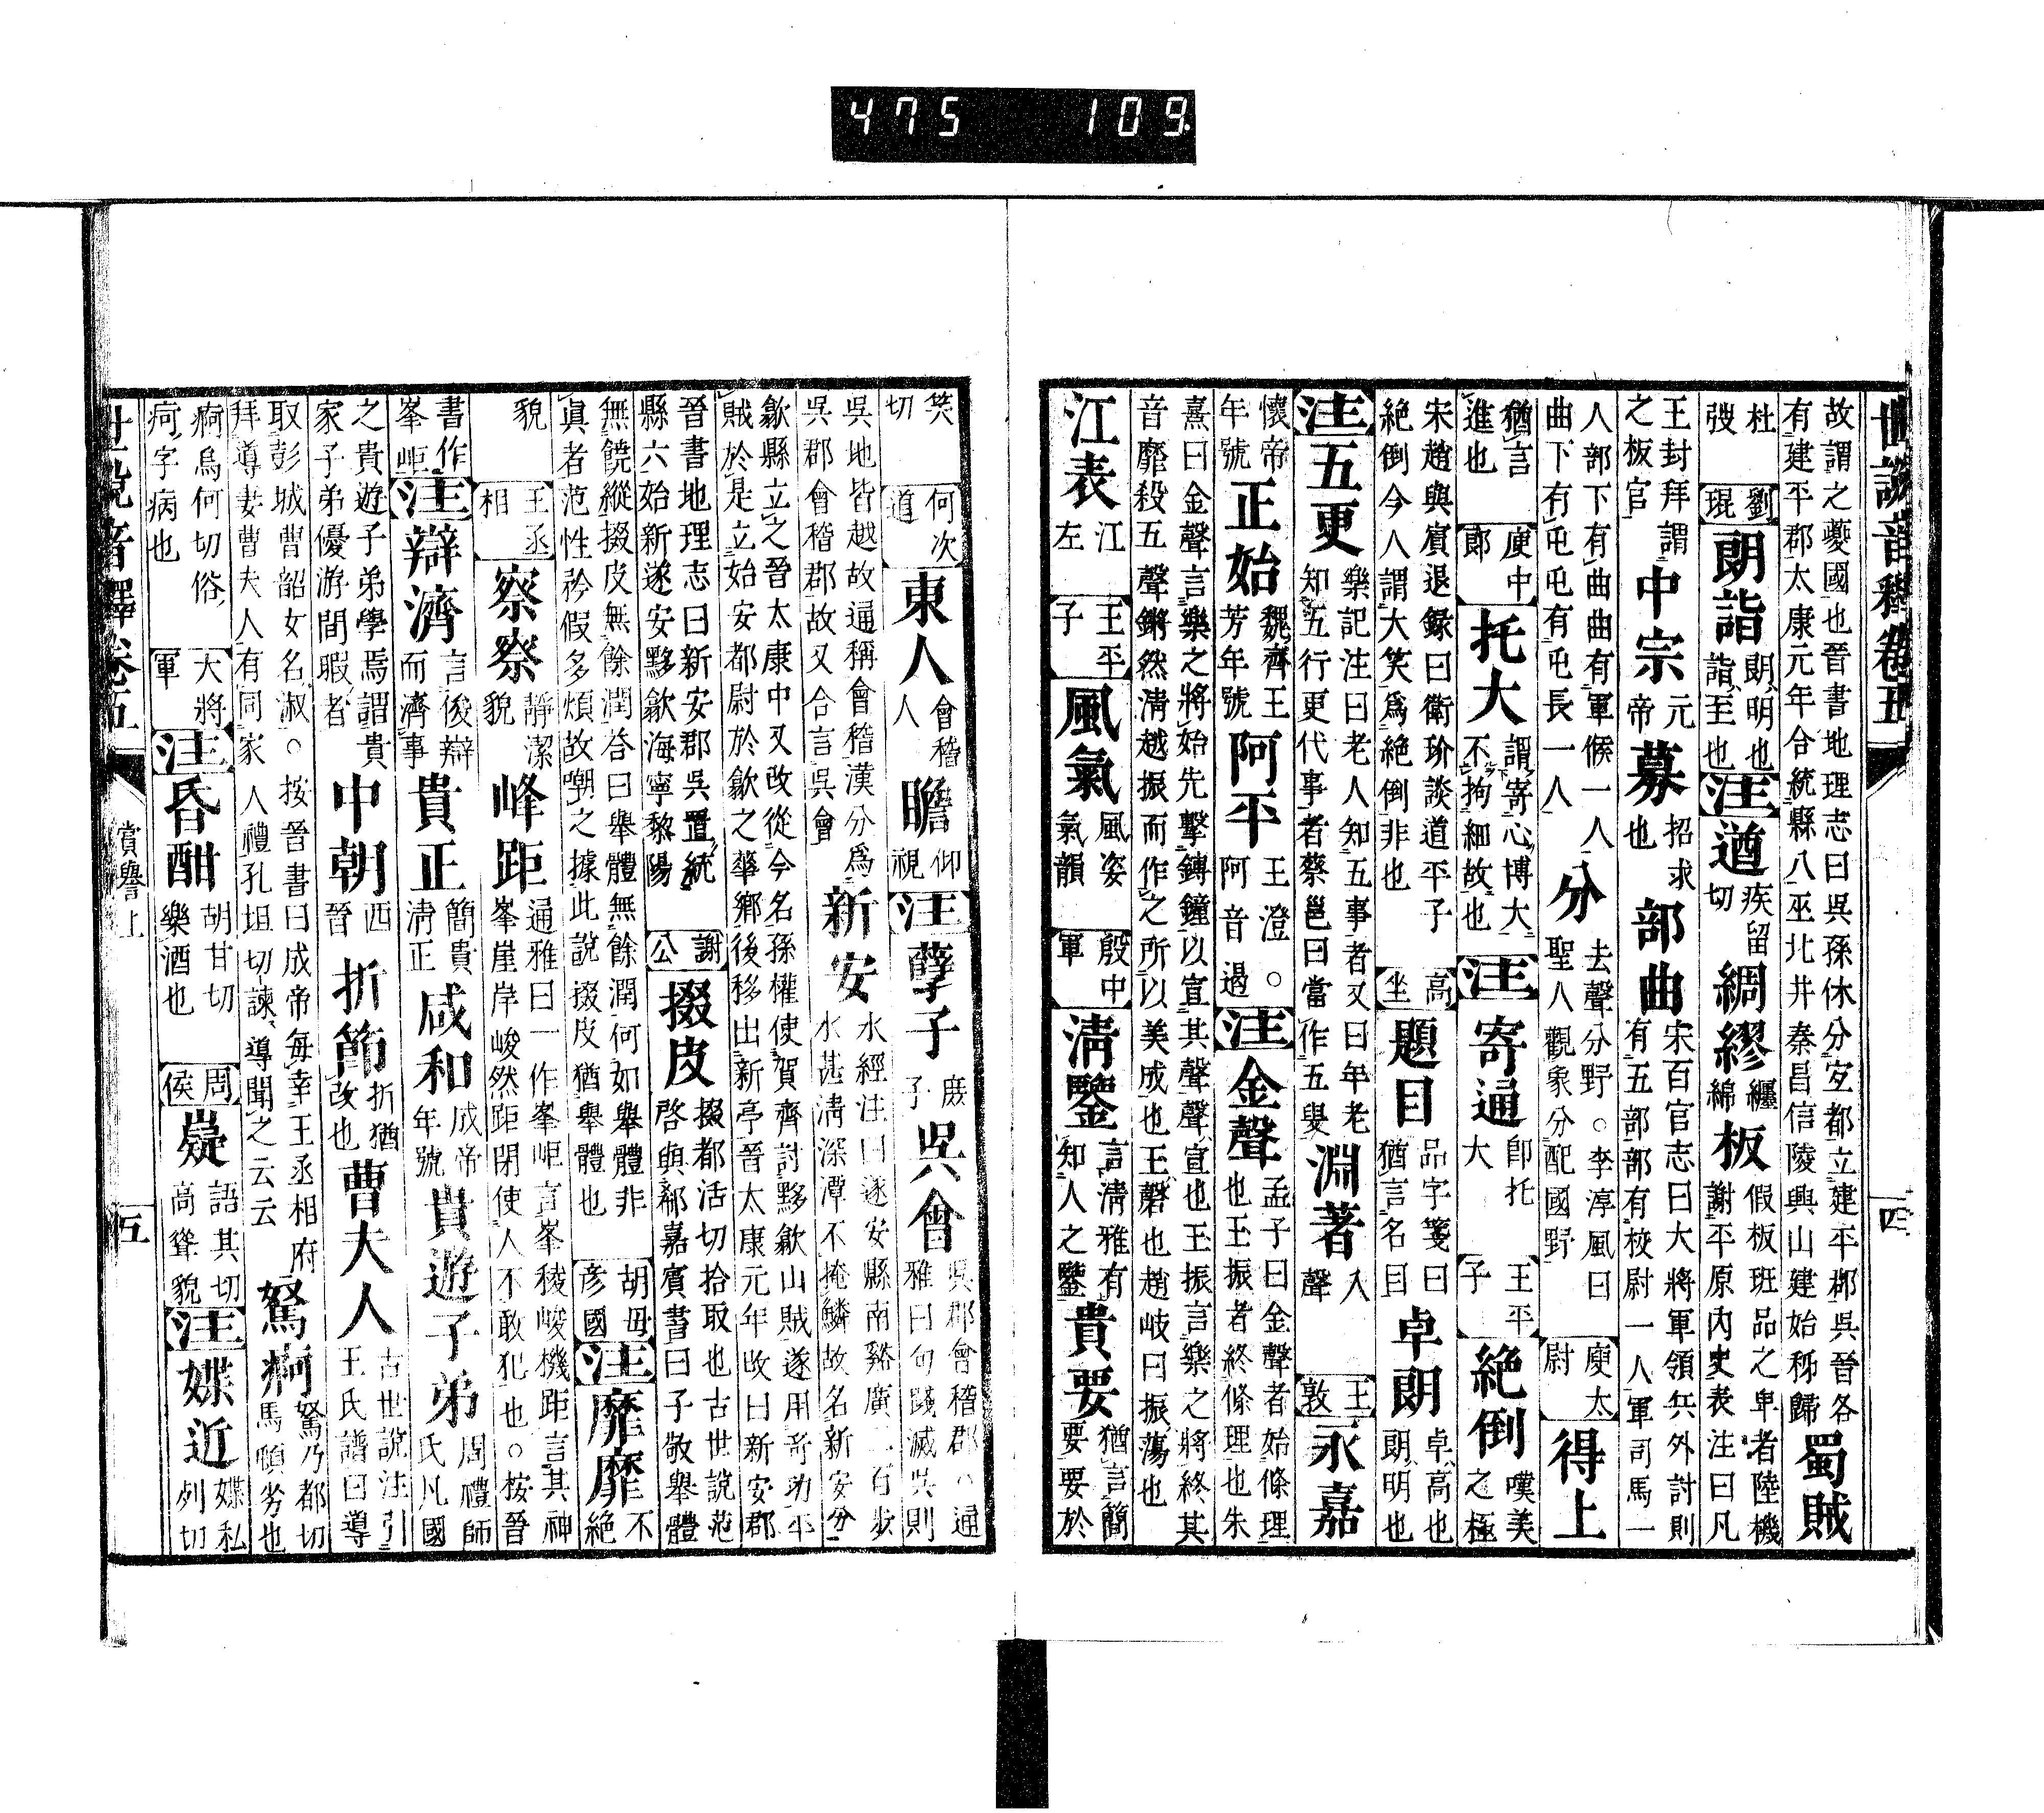 475 109.
世說音釋卷五
四
故謂之夔國也晉書地理志曰吳孫休分宜都立建平郡吳晉各
有建平郡太康元年合統縣八巫北井秦昌信陵興山建始秭歸
蜀賊
杜弢
劉琨
朗詣
朗、明也詣、至也
注
遒
疾留切
綢繆
纏綿
板
假板班品之卑者陸機
謝平原內史表注曰凡
王封拜謂之板官
中宗
元帝
募
招求也
部曲
宋百官志曰大將軍領兵外討則
有五部部有校尉一人軍司馬一
人部下有曲曲有軍候一人
曲下有屯屯有屯長一人
分
去聲分野○李淳風曰
聖人觀象分配國野
庾太尉
得上
猶言進也
庾中郎
托大
謂寄心博大
不拘細故也
注
寄通
卽托大
王平子
絕倒
嘆美之極
宋趙與賓退錄曰衛玠談道平子
絕倒今人謂大笑爲絕倒非也
高坐
題目
品字箋曰
猶言名目
卓朗
卓、高也
朗、明也
注
五更
樂記注曰老人知五事者又曰年老
知五行更代事者蔡邕曰當作五叟
淵著
入聲
王敦
永嘉
懷帝年號
正始
魏齊王芳年號
阿平
王澄○阿音遏
注
金聲
孟子曰金聲者始條理
也王振者終條理也朱
熹曰金聲言樂之將始先擊鎛鐘以宣其聲聲宣也王振言樂之將終其
音靡殺五聲鏘然淸越振而作之所以美成也王磬也趙岐曰振蕩也
江表
江左
王平子
風氣
風姿氣韻
殷中軍
淸鑒
言淸雅有
知人之鑒
貴要
猶言簡
要要於
笑切
何次道
東人
會稽人
瞻
仰視
注
孽子
庶子
吳會
吳郡會稽郡○通
雅曰句踐滅吳則
吳地皆越故通稱會稽漢分爲
吳郡會稽郡故又合言吳會
新安
水經注曰遂安縣南谿廣二百步
水甚淸深潭不掩鱗故名新安分
歙縣立之晉太康中又改從今名孫權使賀齊討黟歙山賊遂用奇功平
賊於是立始安都尉於歙之華鄉後移出新亭晉太康元年收曰新安郡
晉書地理志曰新安郡吳置統
縣六始新遂安黟歙海寧黎陽
謝公
掇皮
掇都活切拾取也古世說范
啓與郗嘉賓書曰子敬舉體
無饒縱掇皮無餘潤答曰舉體無餘潤何如舉體非
眞者范性矜假多煩故嘲之據此說掇皮猶舉體也
胡毋彥國
注
靡靡
不絕
貌
王丞相
察察
靜潔貌
峰距
通雅曰一作峯岠言峯稜峻機距言其神
峯崖岸峻然距閉使人不敢犯也○按晉
書作峯岠
注
辯濟
言俊辯
而濟事
貴正
簡貴淸正
咸和
成帝年號
貴遊子弟
周禮師
氏凡國
之貴遊子弟學焉謂貴
家子弟優游閒暇者
中朝
西晉
折節
折猶改也
曹夫人
古世說注引
王氏譜曰導
取彭城曹韶女名淑○按晉書曰成帝每幸王丞相府
拜導妻曹夫人有同家人禮孔坦切諫、導聞之云云
駑痾
駑乃都切
馬頓劣也
痾烏何切俗
疴字病也
大將軍
注
昏酣
胡甘切
樂酒也
周侯
嶷
語其切
高聳貌
注
媟近
媟私列切
世說音釋卷五
賞譽上
五